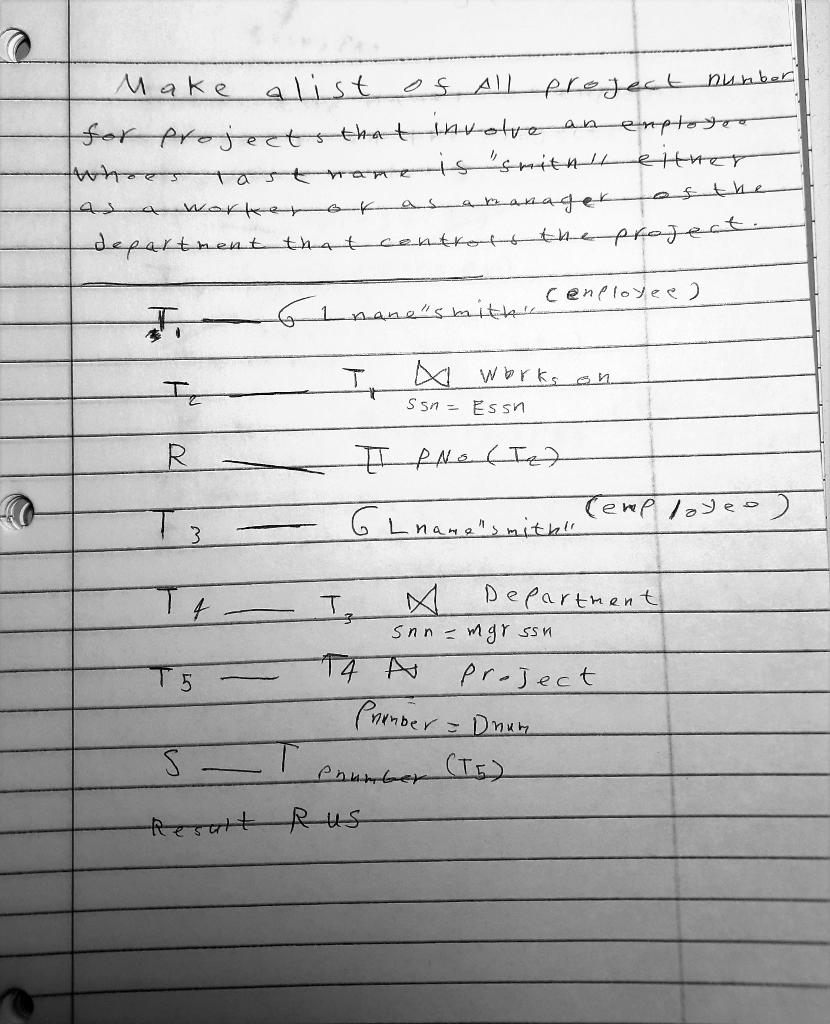 Make alist of All project number
for projects that involve an employee
whoes last name is "smith" either
as a worker or as amanager of the
department that controls the project.
T1 — σ Lname"smith" (employee)
T2 — T1 ⋈ Works on
ssn = Essn
R — π PNo (T2)
T3 — σ Lname"smith" (employee)
T4 — T3 ⋈ Department
snn = mgr ssn
T5 — T4 ⋈ project
Pnumber = Dnum
S — π pnumber (T5)
Result R us